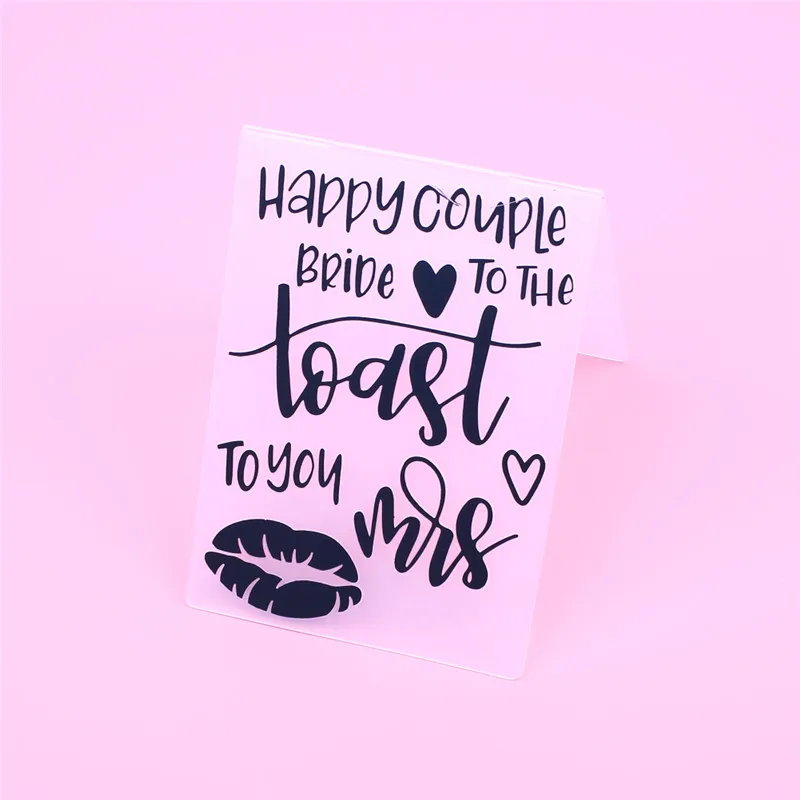 HAPPY COUPLE
BRIDE TO THE
toast
TO YOU
mrs